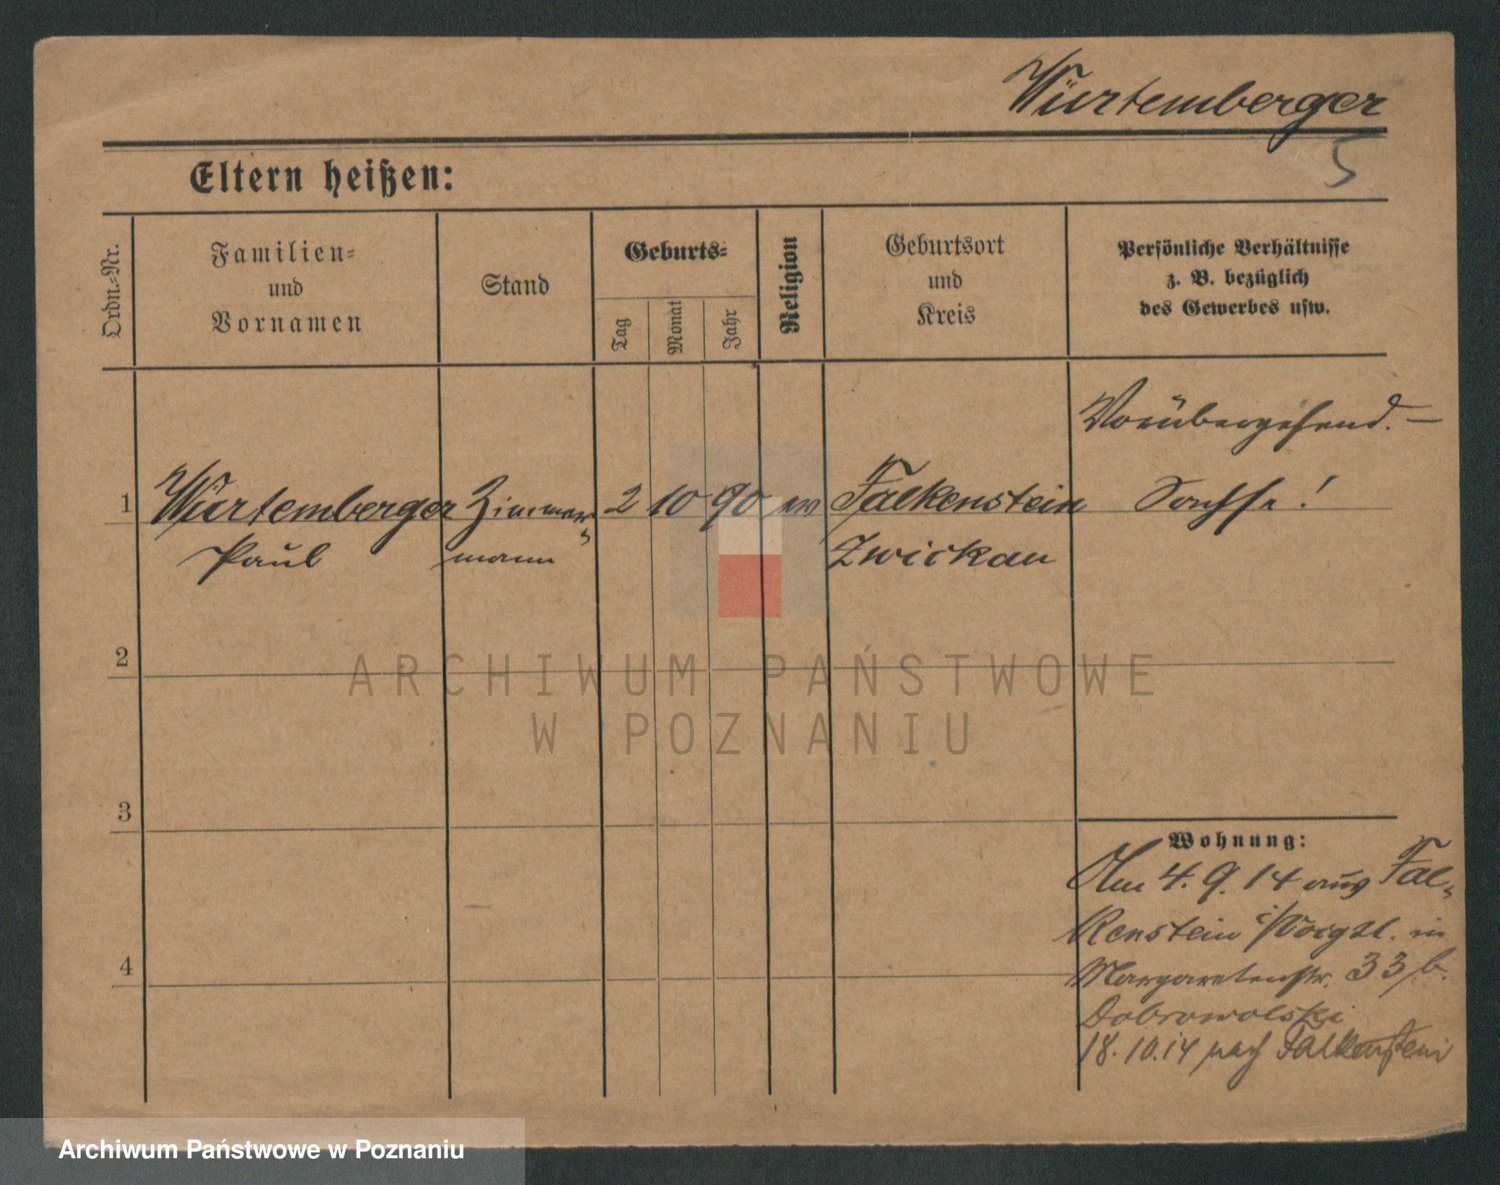 Würtemberger
5
Eltern heißen:
Ordn.-Nr.
Familien-
und
Vornamen
Stand
Geburts-
Tag
Monat
Jahr
Religion
Geburtsort
und
Kreis
Persönliche Verhältnisse
z. B. bezüglich
des Gewerbes usw.
Vorübergehend. —
1 Würtemberger Zimmer- 2 10 90 ev Falkenstein Sachse!
Paul mann Zwickau
2
3
Wohnung:
Am 4. 9. 14 aus Fal-
kenstein i/Voigtl. in
4
Margaretenstr. 33 b.
Dobrowolski
18.10.14 nach Falkenstein
ARCHIWUM PAŃSTWOWE
W POZNANIU
Archiwum Państwowe w Poznaniu